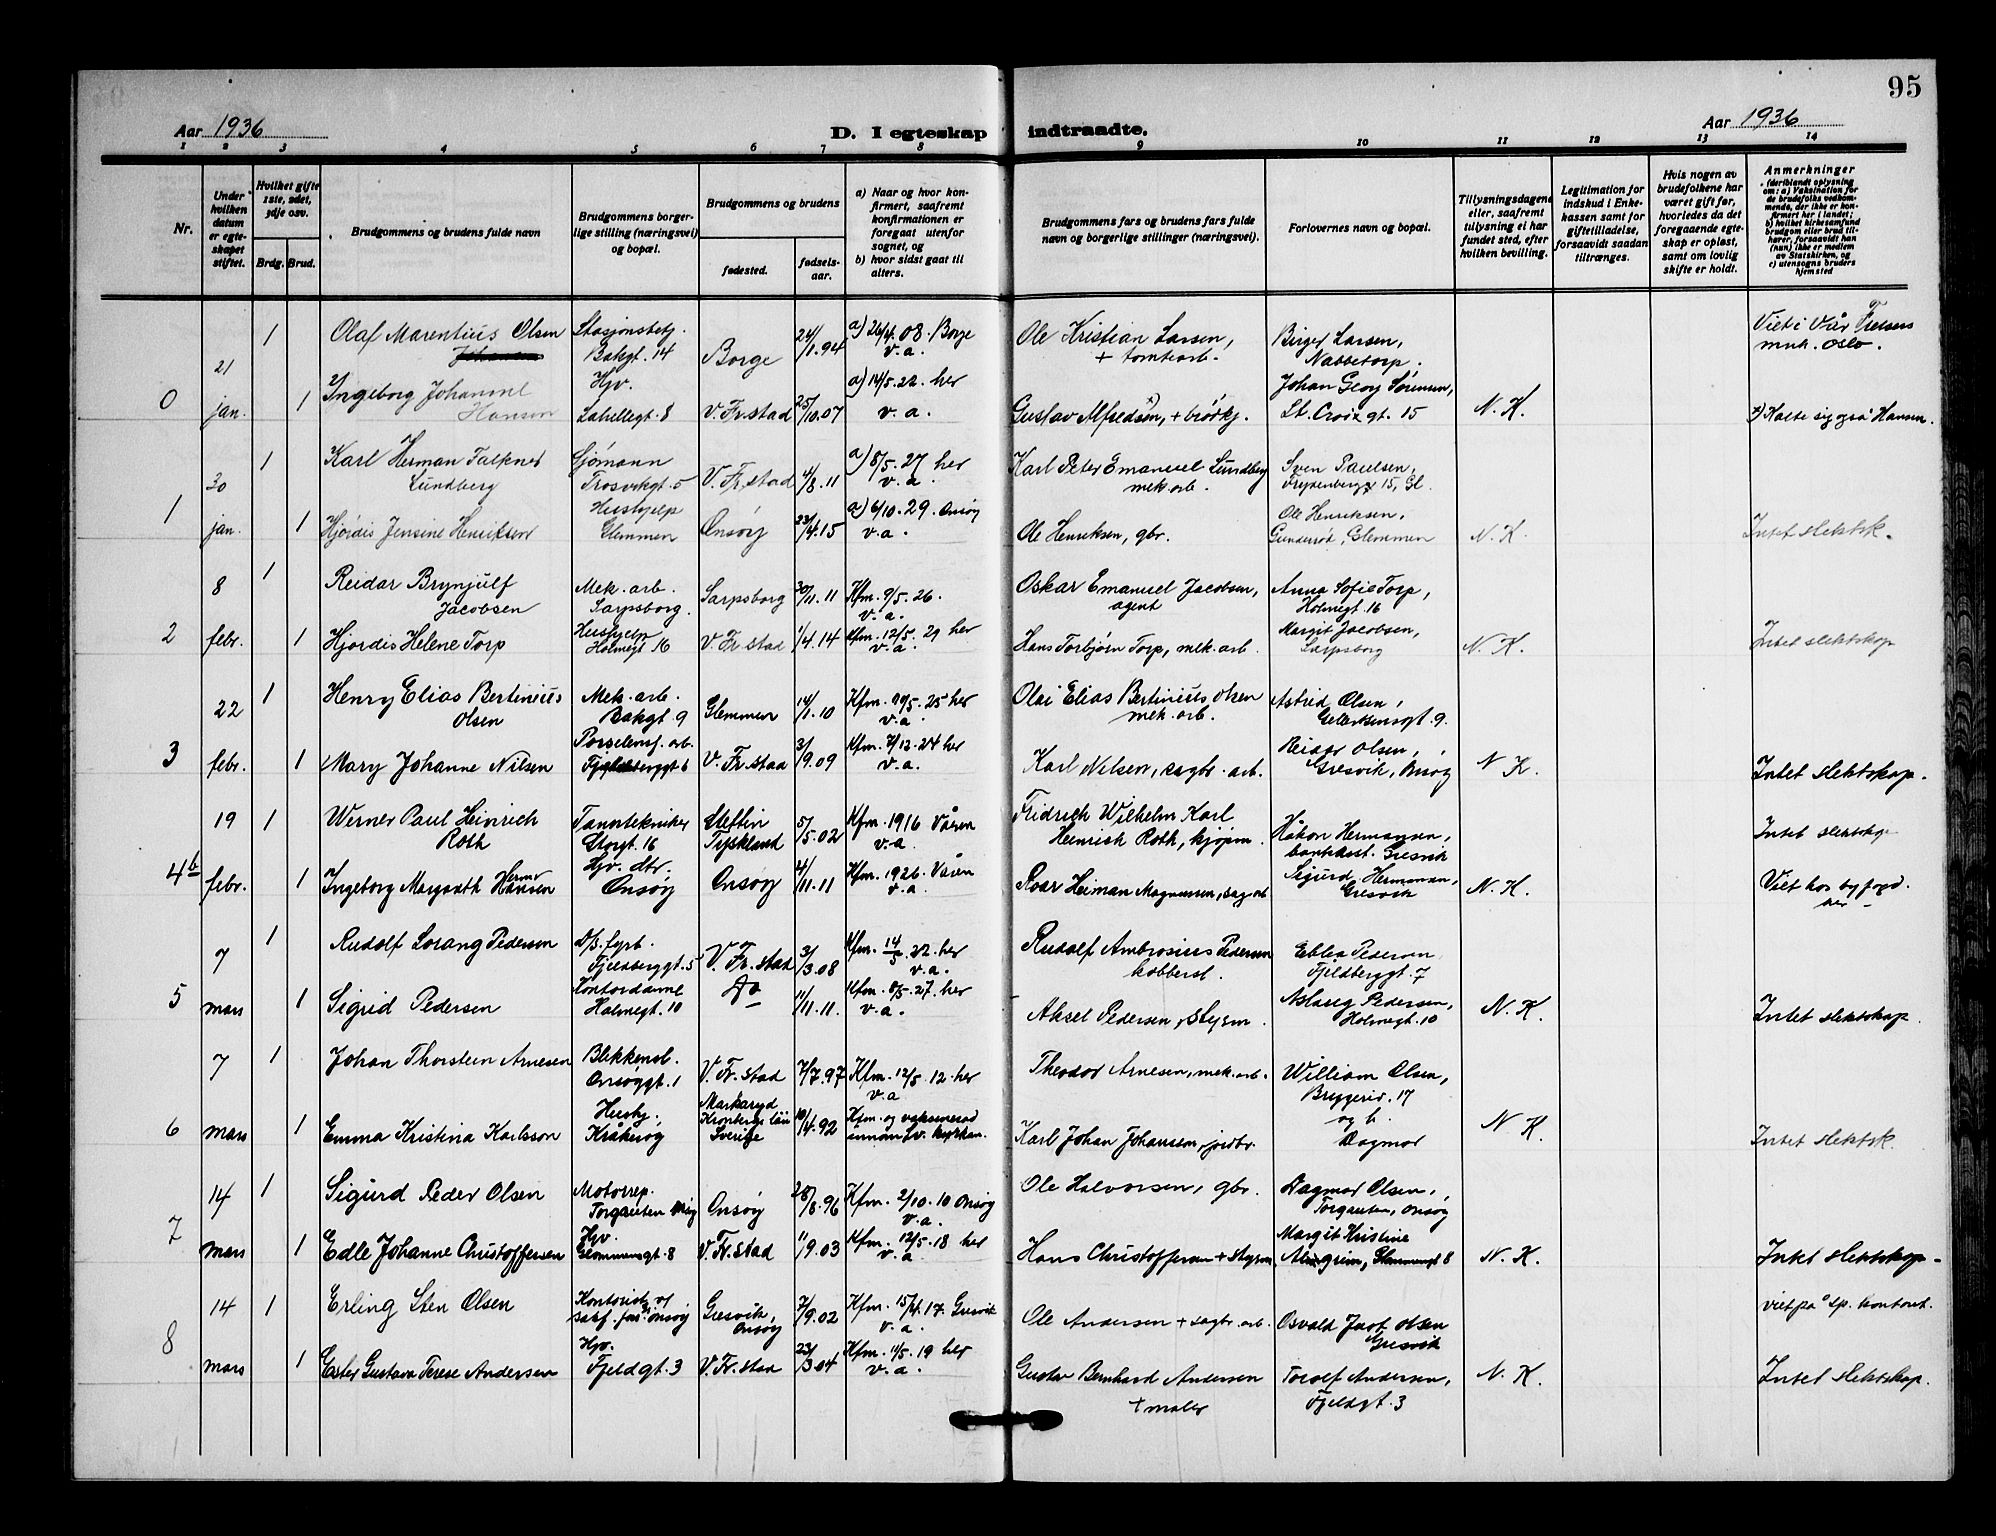 95
Aar 1936
D. I egteskap indtraadte.
Aar 1936
1 2 3 4 5 6 7 8 9 10 11 12 13 14
Nr.
Under hvilken datum er egteskapet stiftet.
Hvilket gifte 1ste, 2det, 3dje osv.
Brdg. Brud.
Brudgommens og brudens fulde navn
Brudgommens borgerlige stilling (næringsvei) og bopæl.
Brudgommens og brudens
fødested.
fødselsaar.
a) Naar og hvor konfirmert, saafremt konfirmationen er foregaat utenfor sognet, og
b) hvor sidst gaat til alters.
Brudgommens fars og brudens fars fulde navn og borgerlige stillinger (næringsvei).
Forlovernes navn og bopæl.
Tillysningsdagene eller, saafremt tillysning ei har fundet sted, efter hvilken bevilling.
Legitimation for indskud i Enkekassen samt for giftetilladelse, forsaavidt saadan tiltrænges.
Hvis nogen av brudefolkene har været gift før, hvorledes da det foregaaende egteskap er opløst, samt om lovlig skifte er holdt.
Anmerkninger
(deriblandt oplysning om: a) Vaksination for de brudefolks vedkommende, der ikke er konfirmert her i landet; b) hvilket kirkesamfund brudgom eller brud tilhører, forsaavidt han (hun) ikke er medlem av Statskirken, og c) utensogns bruders hjemsted
0 21 jan.
1 Olaf Marentius Olsen
Stasjonsbetj. Bakgt. 14
Borge
24/1.94
a) 26/4.08. Borge v.a.
Ole Kristian Larsen, + tomtearb.
Birger Larsen, Nabbetorp.
Viet i Vår Frelsers muk. Oslo.
1 Ingeborg Johanne Hansen
Hjv. Lahellegt. 8
V. Fr.stad
25/10.07
a) 14/5.22. her v.a.
Gustav Alfredsen, x) + brørkj.
Johan Georg Sørensen, St. Croix gt. 15
N.K.
x) Kalte sig også Hansen.
1 30 jan.
1 Karl Herman Falkner Lundberg
Sjømann Trosvikgt. 5
V. Fr.stad
4/8.11
a) 8/5.27 her v.a.
Karl Peter Emanuel Lundberg mek.arb.
Sven Paulsen, 15, Gl.
1 Hjørdis Jensine Henriksen
Hushjelp Glemmen
Onsøy
23/4.15
a) 6/10.29. Onsøy v.a.
Ole Henriksen, gbr.
Ole Henriksen, Gunderød, Glemmen
N.K.
Intet slektsk.
2 8 febr.
1 Reidar Brynjulf Jacobsen
Mek. arb. Sarpsborg.
Sarpsborg
30/11.11
Kfm. 9/5.26. v.a.
Oskar Emanuel Jacobsen, agent
Anna Sofie Torp, Holmegt. 16
1 Hjordis Helene Torp
Hushjelp Holmegt. 16
V. Fr.stad
1/4.14
Kfm. 12/5.29 her v.a.
Hans Torbjørn Torp, mek.arb.
Margit Jacobsen, Sarpsborg
N.K.
Intet slektskap
3 22 febr.
1 Henry Elias Bertinius Olsen
Mek. arb. Bakgt. 9
Glemmen
14/1.10
Kfm. 25 her v.a.
Olai Elias Bertinius Olsen mek.arb.
Astrid Olsen, 9.
1 Mary Johanne Nilsen
Porselensf. arb. Fjeldberggt 6
V. Fr.stad
3/9.09
Kfm. 7/12.24 her v.a.
Karl Nilsen, sagbr. arb.
Reidar Olsen, Gresvik, Onsøy
N.K.
Intet slektskap.
4b 19 febr.
1 Werner Paul Heinrich Roth
Tanntekniker Storgt. 16
Stettin Tyskland
5/5.02
Kfm. 1916 Våren v.a.
Fridrich Wilhelm Karl Heinrich Roth, kjøpm.
Håkon Hermansen, bankasst. Gresvik
Intet slektskap
1 Ingeborg Margareth Hansen Herm
Hjv. dtr. Onsøy
Onsøy
4/11.11
Kfm. 1926. Våren v.a.
Roar Heiman Magnussen, sag arb
Sigurd Hermansen, Gresvik
N.K.
Viet hos byfogd. her
5 7 mars
1 Rudolf Sorang Pedersen
D/S. fyrb. Fjeldberggt. 5
V. Fr.stad
3/3.08
Kfm. 14/5.22. her v.a.
Rudolf Ambrosius Pedersen kobbersl.
Ebba Pedersen Fjeldberggt. 7
1 Sigrid Pedersen
Kontordame Holmegt. 10
Do
11/11.11.
Kfm. 8/5.27. her v.a.
Aksel Pedersen, Styrm.
Aslaug Pedersen, Holmegt. 10
N.K.
Intet slektskap.
6 7 mars
1 Johan Thorstein Arnesen
Blikkensl. Onsøygt. 1
V. Fr.stad
7/7.97
Kfm. 12/5.12. her v.a
Theodor Arnesen, mek.arb.
William Olsen, Bryggeriv. 17
1 Emma Kristina Karlsson
Hushj. Kråkerøy
Markaryd Kronbergs län Sverige
10/4.92
Kfm. og vaksinerad innom sv. kyrkan.
Karl Johan Johansson, jordbr.
og h. Dagmar
N.K.
Intet slektsk.
7 14 mars
1 Sigurd Peder Olsen
Motorrep. Torgauten
Onsøy
28/8.96
Kfm. 2/10.10 Onsøy v.a.
Ole Halvorsen, gbr.
Dagmar Olsen, Torgauten, Onsøy
1 Edle Johanne Christoffersen
Hjv. Glommengt. 8
V. Fr.stad
11/9.03
Kfm. 12/5.18 her v.a
Hans Christoffersen + Styrm.
Margit Kristine Almgrein, Glommengt 8
N.K.
Intet slektskap.
8 14 mars
1 Erling Sten Olsen
Kontorist v/ Onsøy
Gresvik, Onsøy
7/9.02
Kfm. 15/4.17. Gresvik v.a.
Ole Andersen + sagbr. arb.
Osvald Jarf Olsen Gresvik
viet på sp. kontoret.
1 Ester Gustava Terese Andersen
Hjv. Fjeldgt. 3
V. Fr.stad
23/3.04
Kfm. 11/5.19 her v.a.
Gustav Bernhard Andersen + maler
Torolf Andersen, Fjeldgt. 3
N.K.
Intet slektskap.